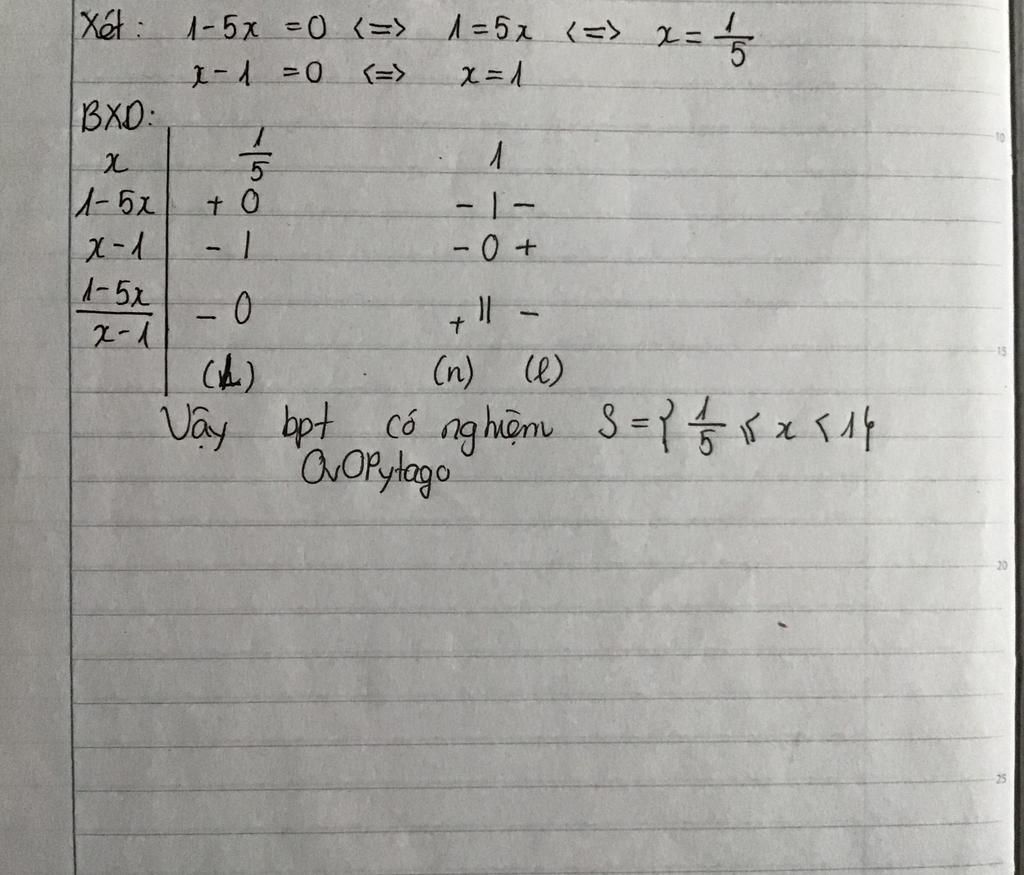 Xét: 1-5x =0 <=> 1=5x <=> x = 1/5
x-1 =0 <=> x=1
BXD:
x | 1/5 1
1-5x | + 0 - | -
x-1 | - | - 0 +
(1-5x)/(x-1) | - 0 + || -
(l) (n) (l)
Vậy bpt có nghiệm S = { 1/5 ≤ x < 1}
OvOPytago
10
15
20
25